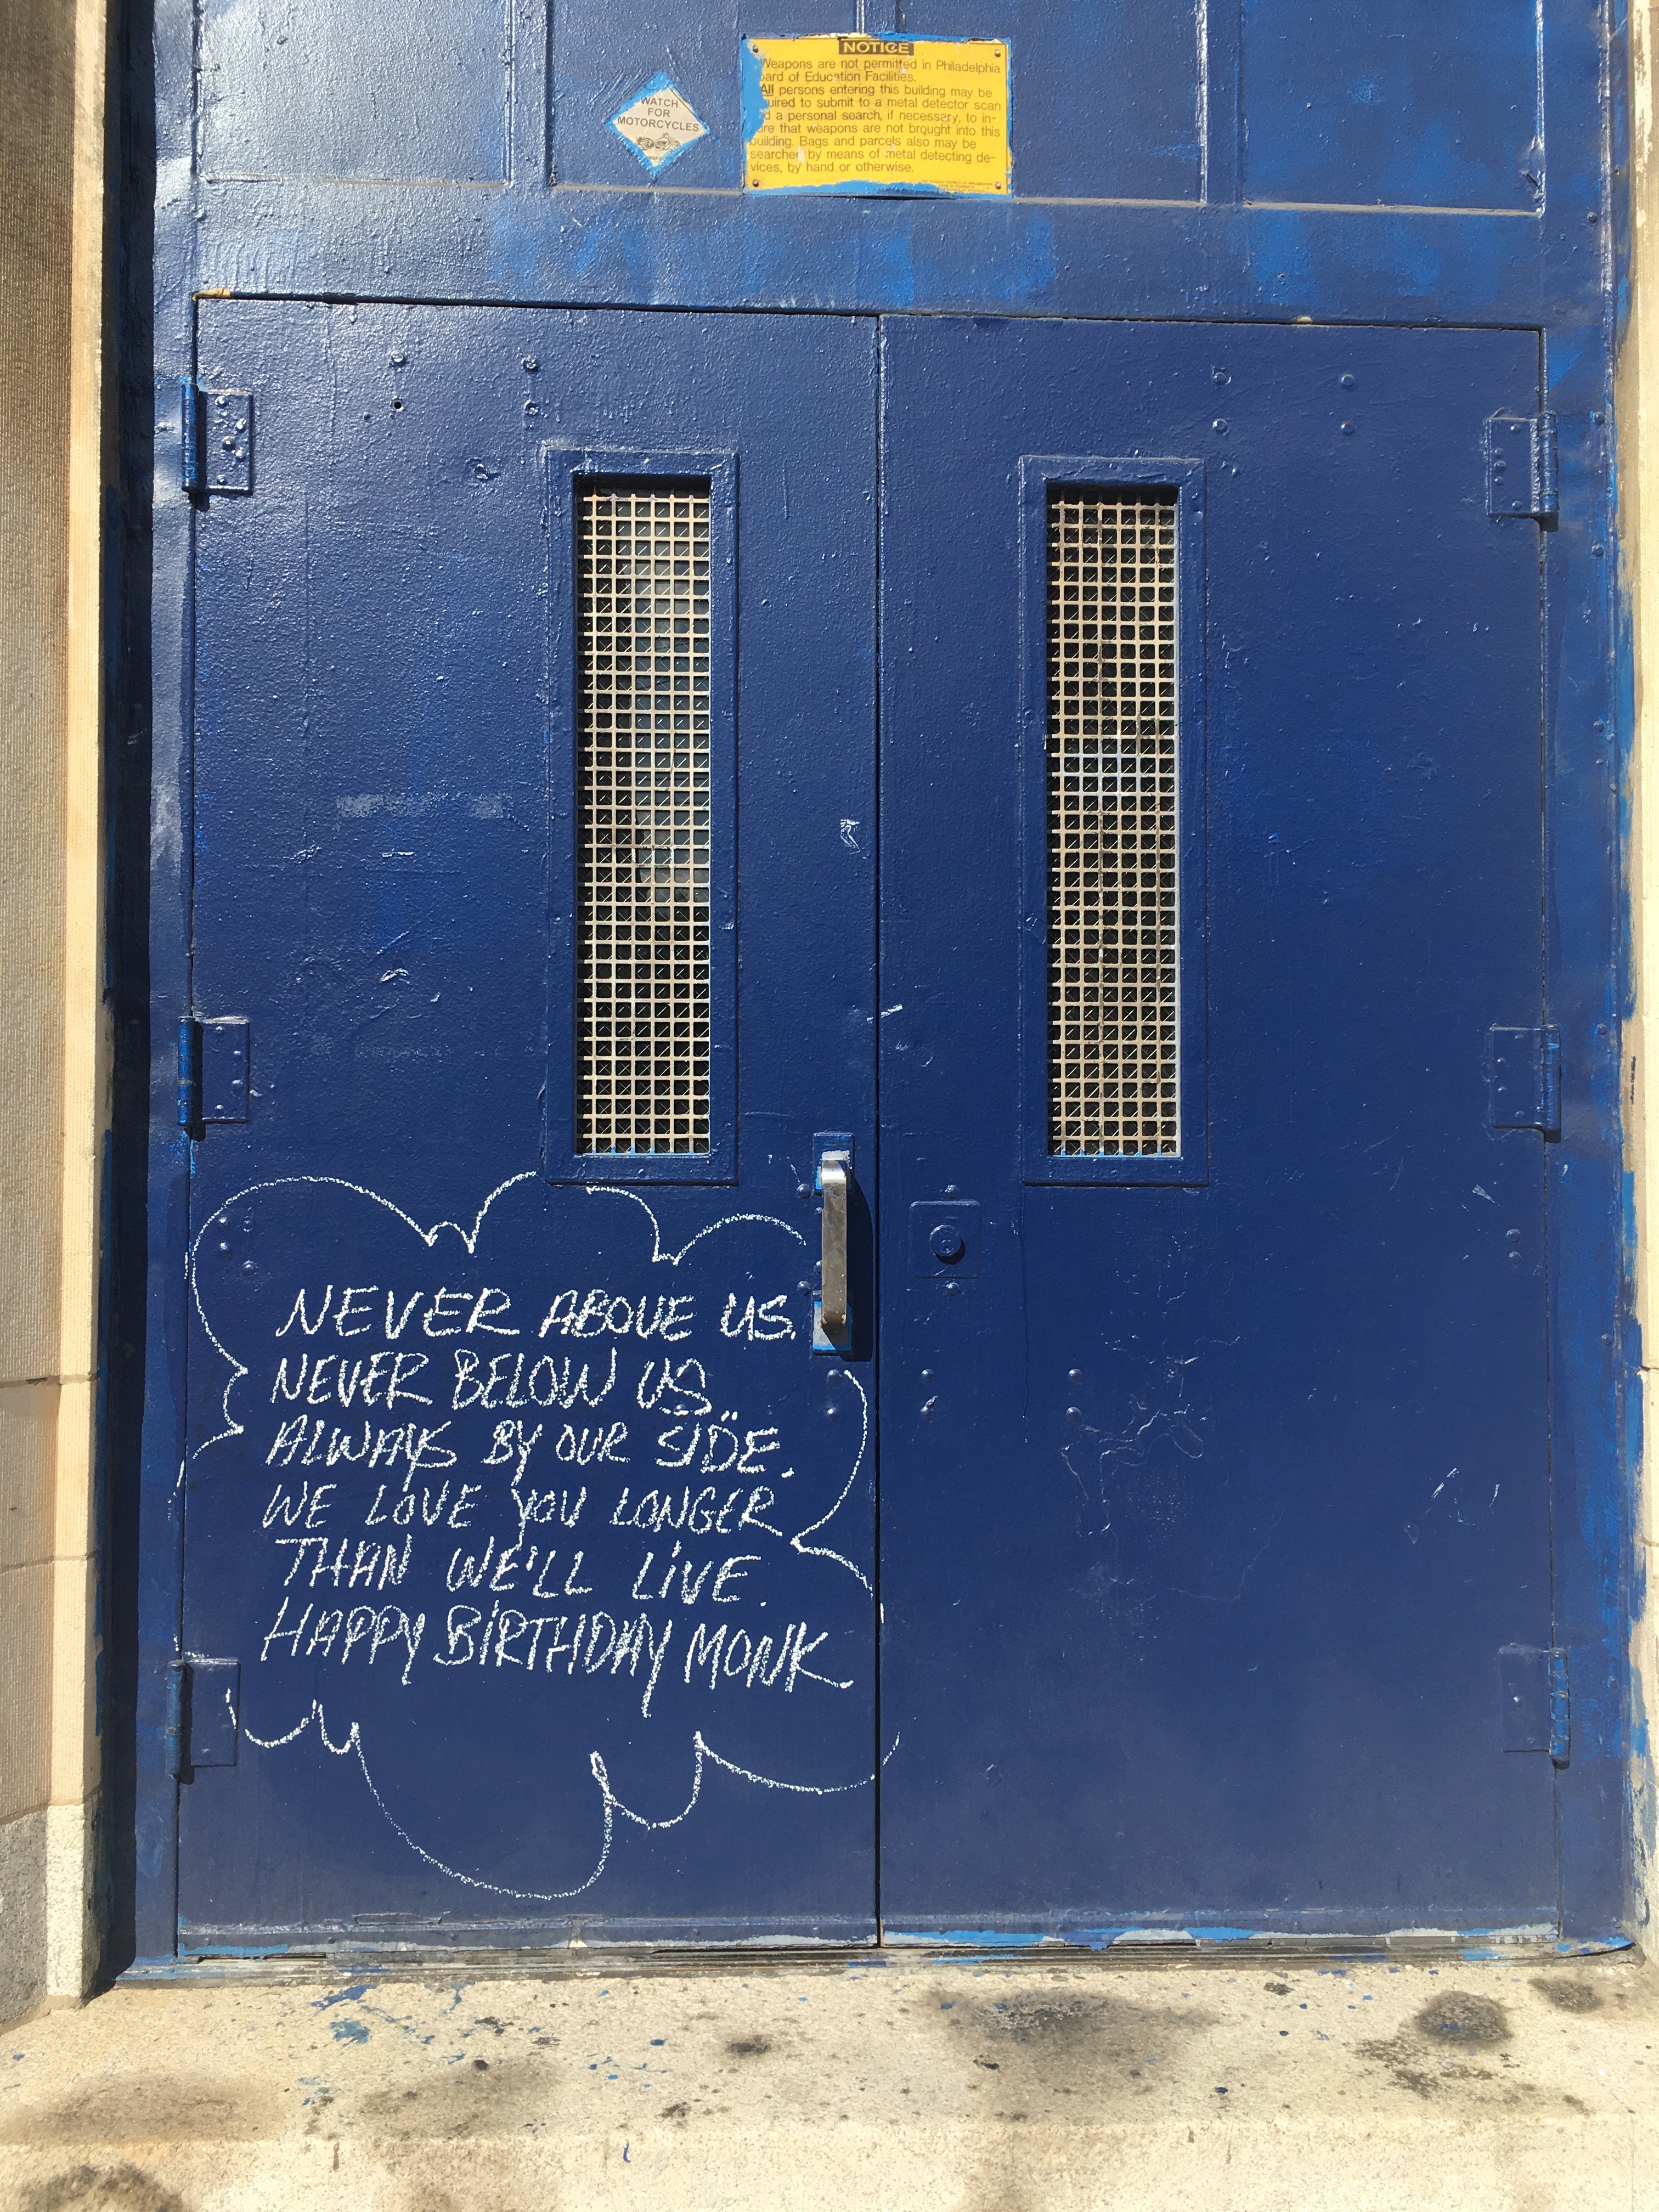 NOTICE
Weapons are not permitted in Philadelphia
oard of Education Facilities.
All persons entering this building may be
uired to submit to a metal detector scan
d a personal search, if necessary, to in-
ure that weapons are not brought into this
uilding. Bags and parcels also may be
searched by means of metal detecting de-
vices, by hand or otherwise.
WATCH
FOR
MOTORCYCLES
NEVER ABOVE US.
NEVER BELOW US
ALWAYS BY OUR SIDE.
WE LOVE YOU LONGER
THAN WE'LL LIVE.
HAPPY BIRTHDAY MONK